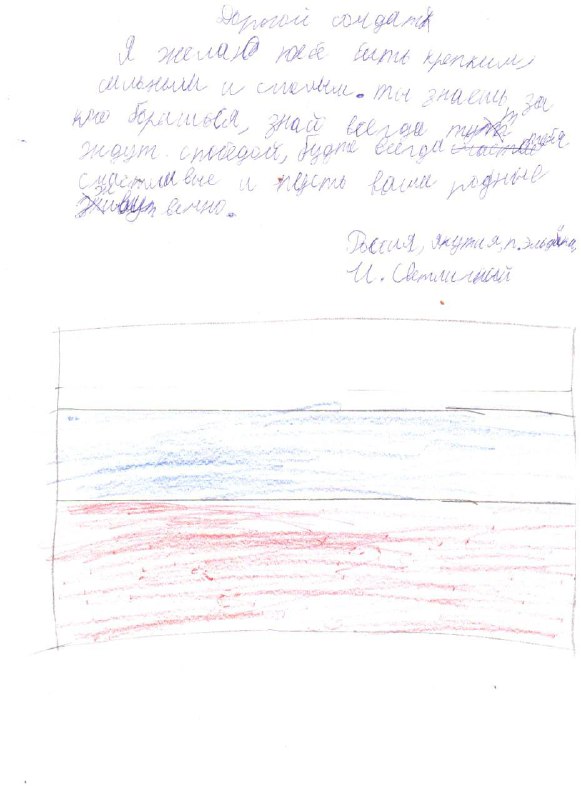 Дорогой солдат Я
Я желаю тебе быть крепким,
сильным и смелым. ты знаешь за
кто борешься, знай всегда тебя
ждут с победой, будте всегда
счастливые и пусть ваши родные
живут вечно.
Россия, якутия, п. Эльдикан,
И. Светличный